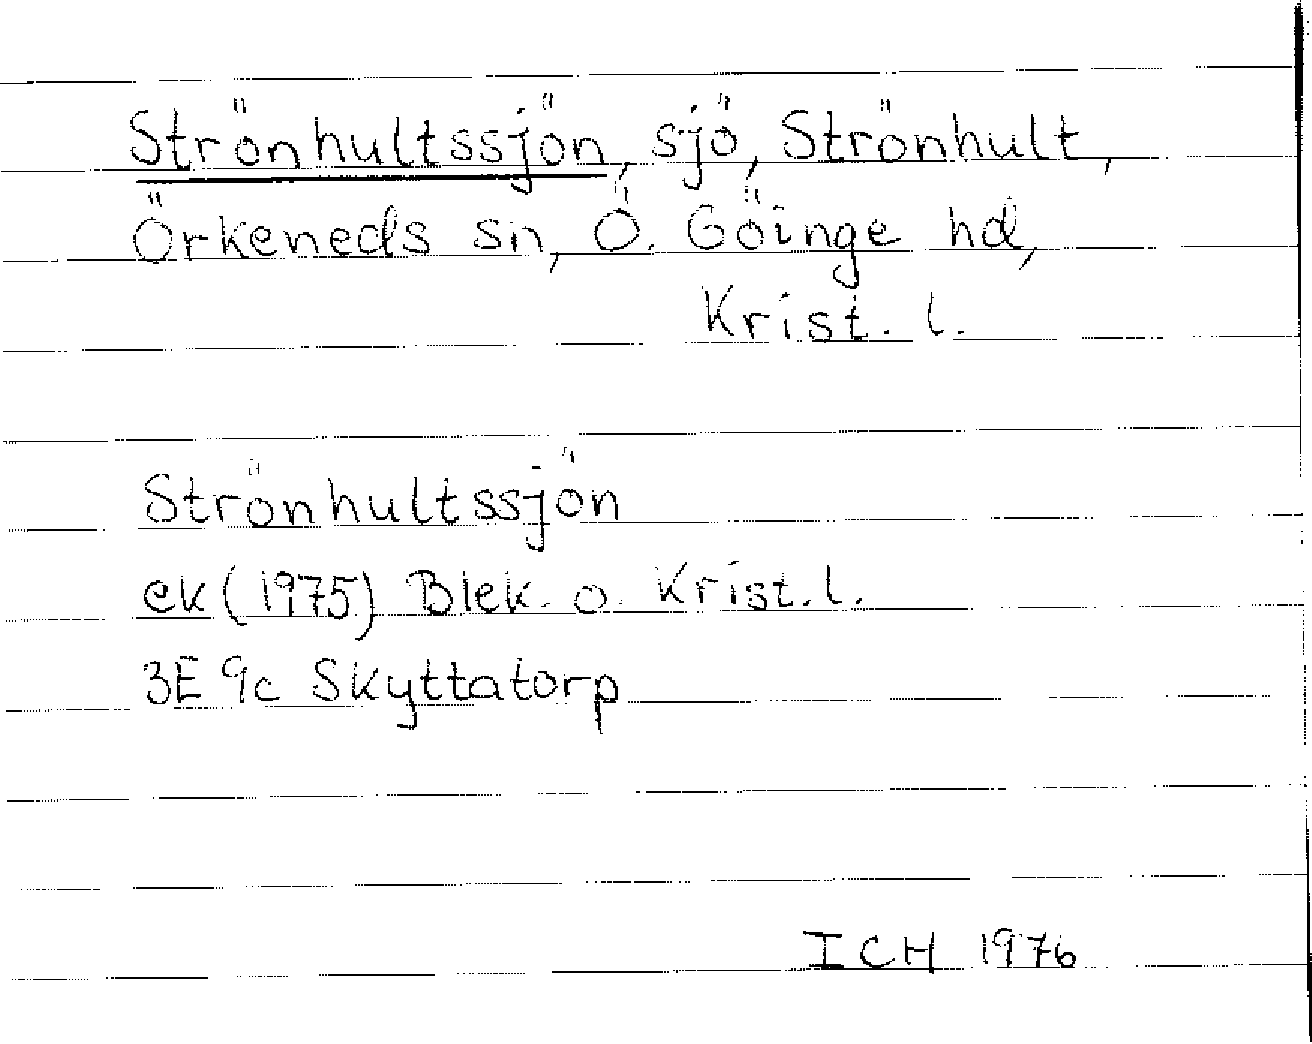 Strönhultssjön, sjö, Strönhult,
Örkeneds sn, Ö. Göinge hd,
Krist. l.
Strönhultssjön
ek (1975) Blek. o. Krist. l.
3E 9c Skyttatorp
ICH 1976